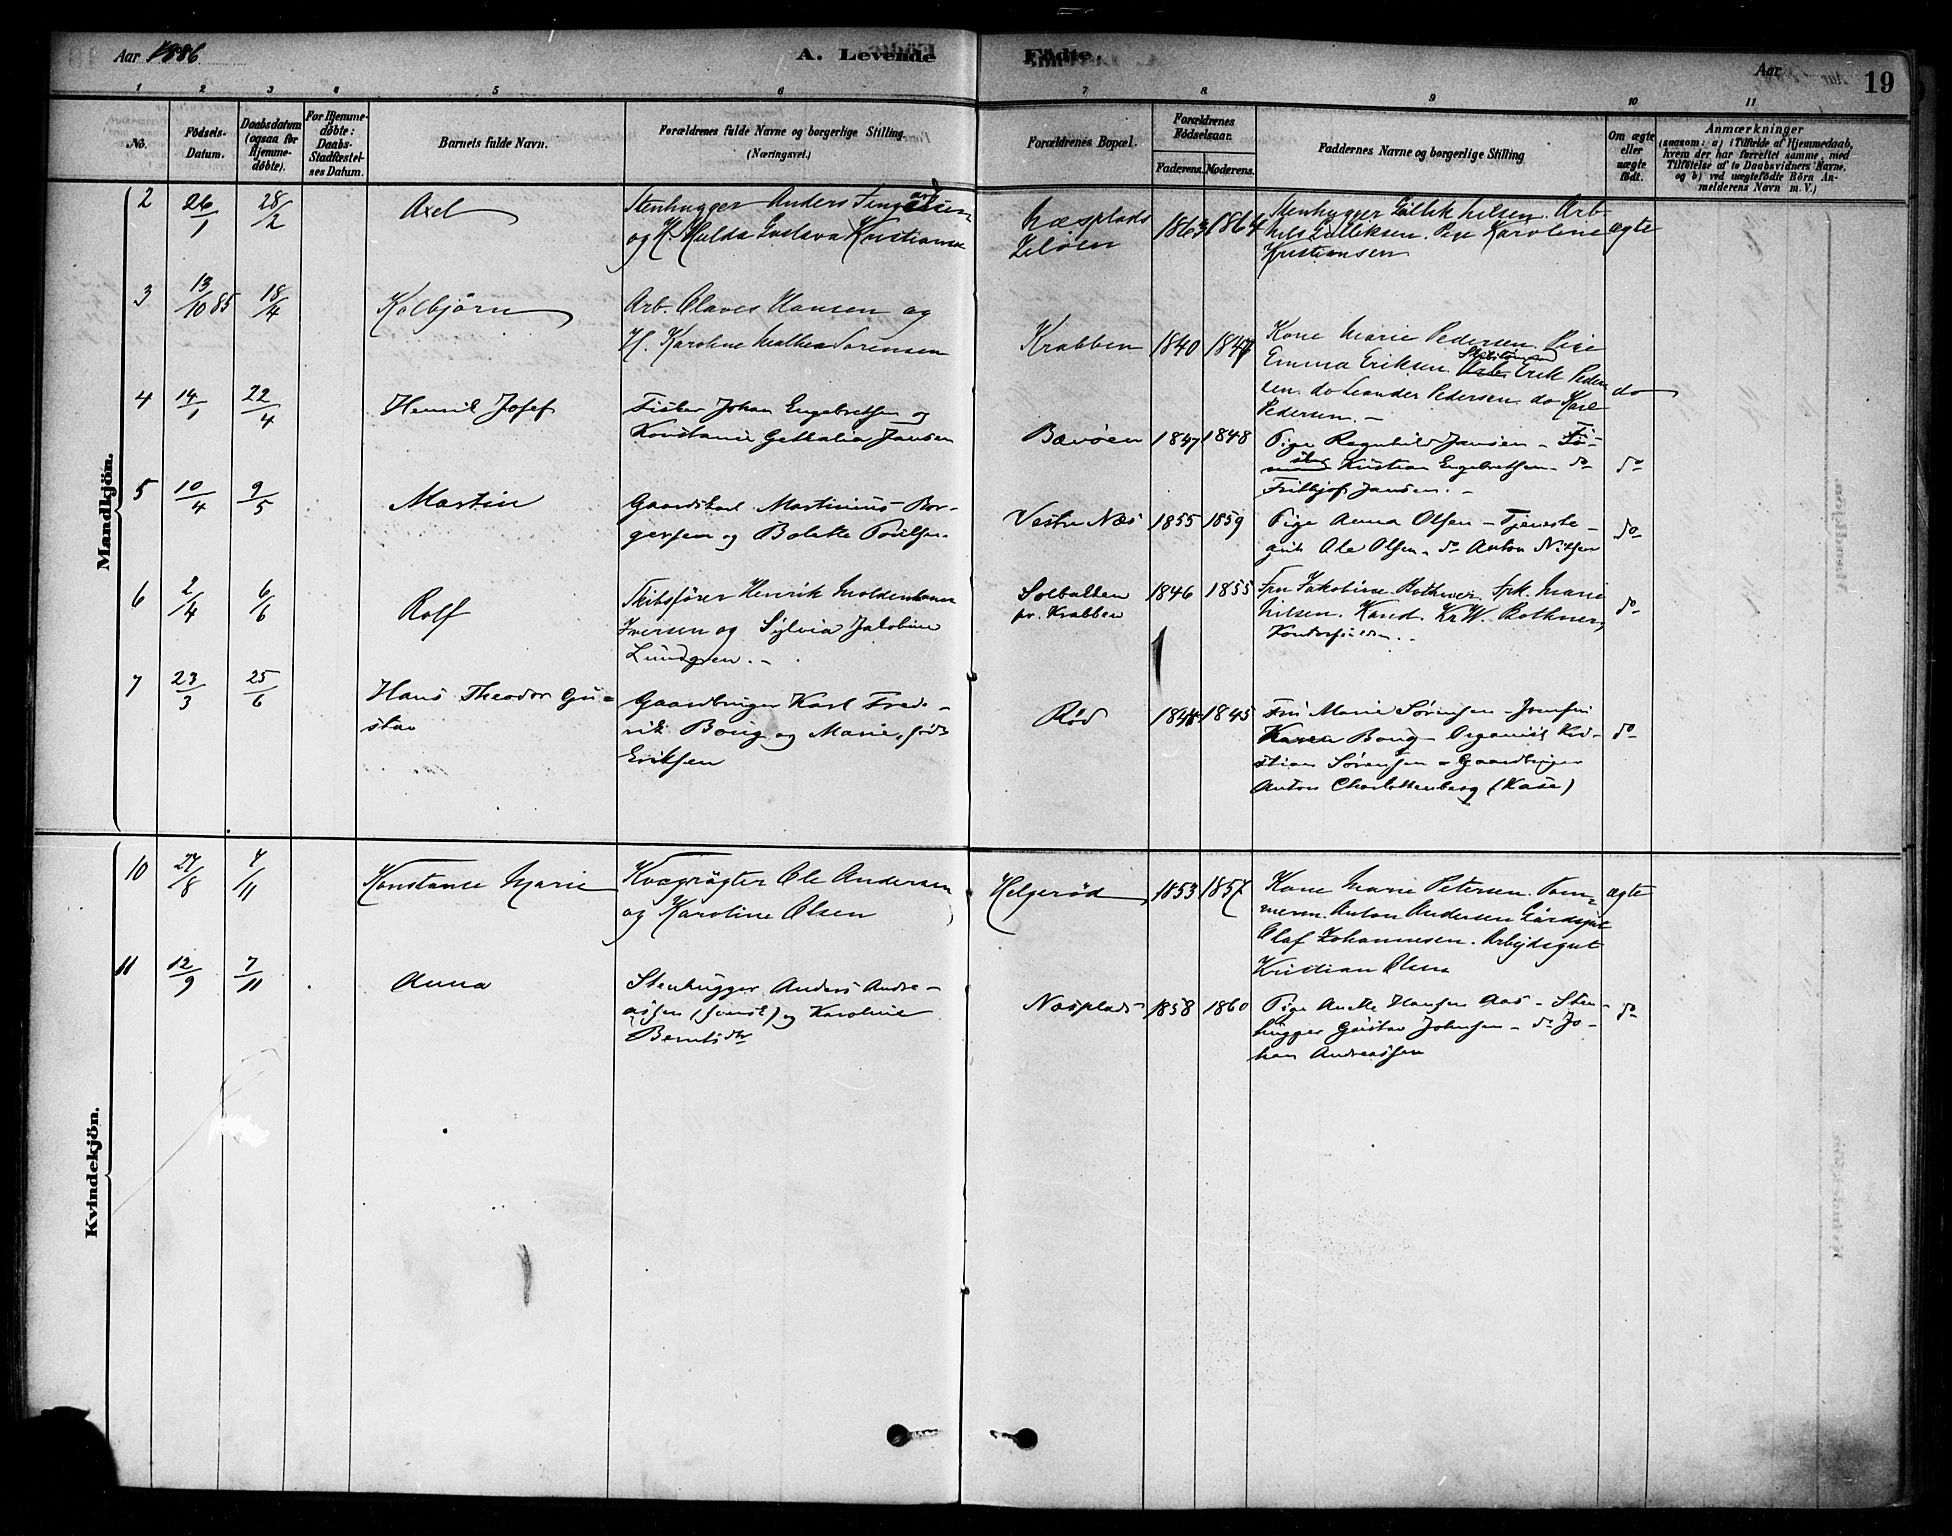 Aar 1886
A. Levende
Fødte.
Aar
19
1 2 3 4 5 6 7 8 9 10 11
No.
Fødsels-
Datum.
Daabsdatum
(ogsaa for
Hjemme-
døbte).
For Hjemme-
døbte:
Daabs-
Stadfæstel-
ses Datum.
Barnets fulde Navn.
Forældrenes fulde Navne og borgerlige Stilling.
(Næringsvei.)
Forældrenes Bopæl.
Forældrenes
Fødselsaar.
Faderens. Moderens.
Faddernes Navne og borgerlige Stilling
Om ægte
eller
uægte
født.
Anmærkninger
(saasom: a) i Tilfælde af Hjemmedaab,
hvem der har forrettet samme, med
Tilføielse af to Daabsvidners Navne.
og b) ved uægtefødte Børn An-
melderens Navn m. V.)
Mandkjön.
2 26/1 28/2 Axel
Stenhugger Anders
og H. Hulda Gustava Kristianse
Næsplads
Jeløen
1863 1864
Stenhugger Gullik Nilsen. Arb.
Nils Gulliksen. Pige Karoline
Kristiansen
ægte
3 13/10 85 18/4 Kolbjörn
Arb. Olaves Hansen og
H. Karoline Mathea Sorensen
Krabben 1840 1847
Kone Marie Pedersen. Pige
Emma Eriksen. Arb. Erik Peder
sen. do Leander Pedersen. do Karl
Pedersen. -
do
4 14/1 22/4 Henrik Josef
Fisker Johan Engebretsen og
Konstance Gethalia Jansen
Bævøen 1847 1848
Pige Ragnhild Jansen - Fi-
sker Kristian Engebretsen - do
Frithjof Jansen. -
do
5 10/4 9/5 Martin
Gaardskarl Martinius Bor-
gersen og Bolette Poulsen.
Vestre Næs 1855 1859
Pige Anna Olsen - Tjeneste-
gut Ole Olsen - do Anton Nilsen
do
6 2/4 6/6 Rolf
Skibsfører Henrik Moldenhauer
Iversen og Sylvia Jakobine
Lundgren. -
Solbakken
pr. Krabben
1846 1855
Fru Jakobine Bothner. Frk. Marie
Nilsen. Kand. Kr. W. Bothner,
do
7 23/3 25/6 Hans Theodor Gu-
stav
Gaardbruger Karl Fred-
rik Boug og Marie, født
Eriksen
Rød 1844 1845
Fru Marie Sørensen - Jomfru
Karen Boug - Organist Kri-
stian Sørensen - Gaardbruger
Anton Charlottenberg (Kase)
do
Kvindekjön.
10 27/8 7/11 Konstance Marie
Kvægrøgter Ole Andersen
og Karoline Olsen
Helgerød 1853 1857
Kone Marie Petersen. Tøm-
merm. Anton Andersen Gårdsgut
Olaf Johannesen. Arbejdsgut
Kristian Olsen
ægte
11 12/9 7/11 Anna
Stenhugger Anders Andre-
assen (svensk) og Karoline
Berntsdtr
Næsplads 1858 1860
Pige Anette Hansen Aas - Sten-
hugger Gustav Johnsen - do Jo-
han Andreassen
do